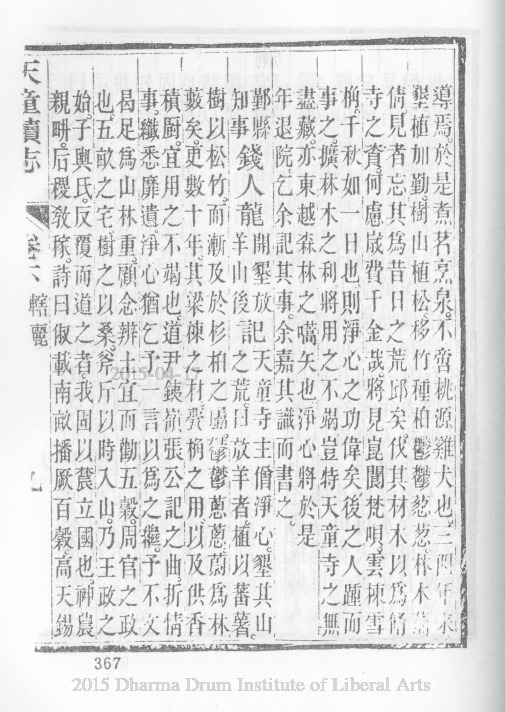 導焉於是煮茗烹泉不啻桃源雞犬也三四年來
墾植加勤樹山植松移竹種柏鬱鬱葱葱林木
倩見者忘其為昔日之荒邱矣伐其材木以為脩
寺之資何慮歲費千金哉將見崑閬梵唄雲棟雪
桷千秋如一日也則淨心之功偉矣後之人踵而
事之擴林木之利將用之不竭豈特天童寺之無
盡藏亦東越森林之嚆矢也淨心將於是
年退院乞余記其事余嘉其識而書之
鄞縣知事錢人龍開墾放羊山後記天童寺主僧淨心墾其山
後之荒曰放羊者植以蕃薯
樹以松竹而漸及於杉柏之屬鬱鬱蔥蔥蔚為林
藪矣更數十年其梁棟之材甍桷之用以及供香
積厨宜用之不竭也道尹錢嶺張公記之曲折情
事纖悉靡遺淨心猶乞予一言以為之繼予不文
曷足為山林重顧念辨土宜而勤五穀周官之政
也五畝之宅樹之以桑斧斤以時入山乃王政之
始子輿氏反覆而道之者我固以農立國也神農
親畊后稷敎稼詩曰俶載南畝播厥百穀高天錫
天童續志
卷下
轄麗
九
367
2015-04-17
2015 Dharma Drum Institute of Liberal Arts